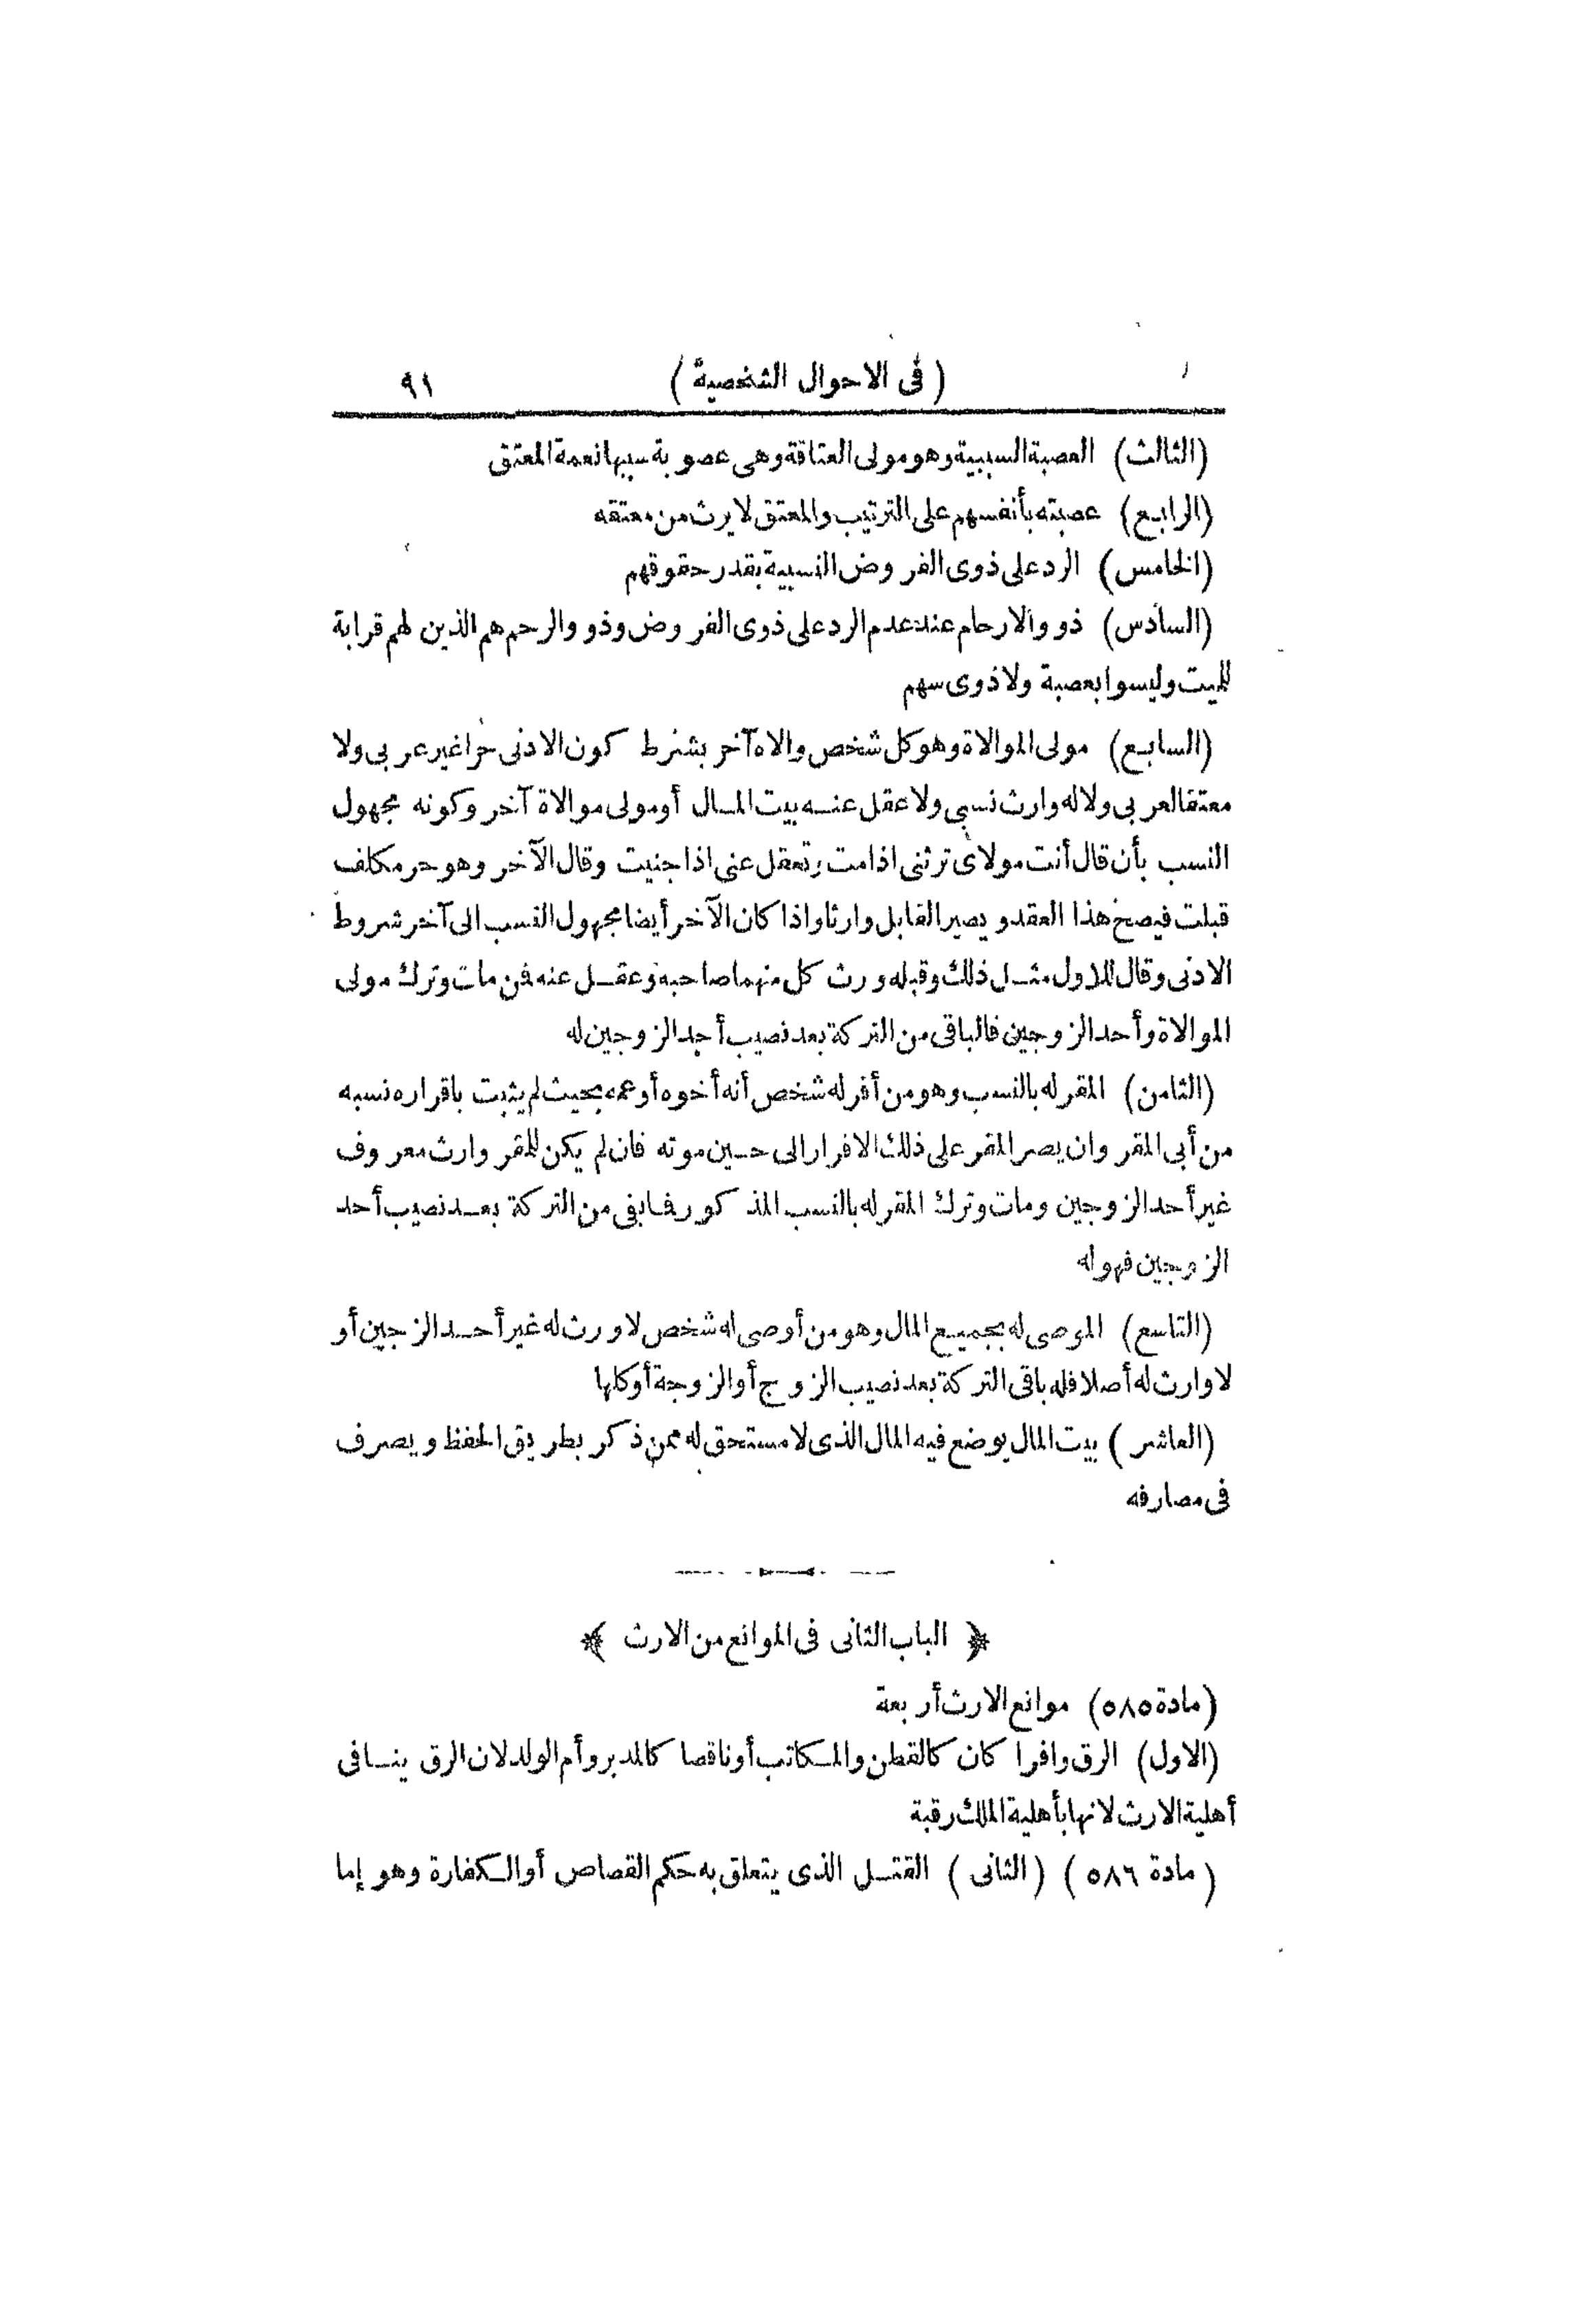 (فى الاحوال الشخصية) ٩١
(الثالث) العصبة السببية وهو مولى العتاقة وهى عصوبة سببها نعمة المعتق
(الرابع) عصبته بأنفسهم على الترتيب والمعتق لا يرث من معتقه
(الخامس) الرد على ذوى الفروض النسبية بقدر حقوقهم
(السادس) ذوو الارحام عند عدم الرد على ذوى الفروض وذوو الرحم هم الذين لهم قرابة
للميت وليسوا بعصبة ولا ذوى سهم
(السابع) مولى الموالاة وهو كل شخص والاه آخر بشرط كون الادنى حرا غير عربى ولا
معتقا لعربى ولا له وارث نسبى ولا عقل عنه بيت المال أو مولى موالاة آخر وكونه مجهول
النسب بأن قال أنت مولاى ترثنى اذا مت وتعقل عنى اذا جنيت وقال الآخر وهو حر مكلف
قبلت فيصح هذا العقد ويصير القابل وارثا واذا كان الآخر أيضا مجهول النسب الى آخر شروط
الادنى وقال للاول مثل ذلك وقبله ورث كل منهما صاحبه وعقل عنه فمن مات وترك مولى
الموالاة وأحد الزوجين فالباقى من التركة بعد نصيب أحد الزوجين له
(الثامن) المقر له بالنسب وهو من أقر له شخص أنه أخوه أو عمه بحيث لم يثبت باقراره نسبه
من أبى المقر وان يصر المقر على ذلك الاقرار الى حين موته فان لم يكن للمقر وارث معروف
غير أحد الزوجين ومات وترك المقر له بالنسب المذكور فما بقى من التركة بعد نصيب أحد
الزوجين فهو له
(التاسع) الموصى له بجميع المال وهو من أوصى له شخص لا ورث له غير أحد الزجين أو
لا وارث له أصلا فله باقى التركة بعد نصيب الزوج أو الزوجة أو كلها
(العاشر) بيت المال يوضع فيه المال الذى لا مستحق له ممن ذكر بطريق الحفظ ويصرف
فى مصارفه
﴿ الباب الثانى فى الموانع من الارث ﴾
(مادة ٥٨٥) موانع الارث أربعة
(الاول) الرق وافرا كان كالقطن والمكاتب أو ناقصا كالمدبر وأم الولد لان الرق ينافى
أهلية الارث لانها بأهلية الملك رقبة
(مادة ٥٨٦) (الثانى) القتل الذى يتعلق به حكم القصاص أو الكفارة وهو إما